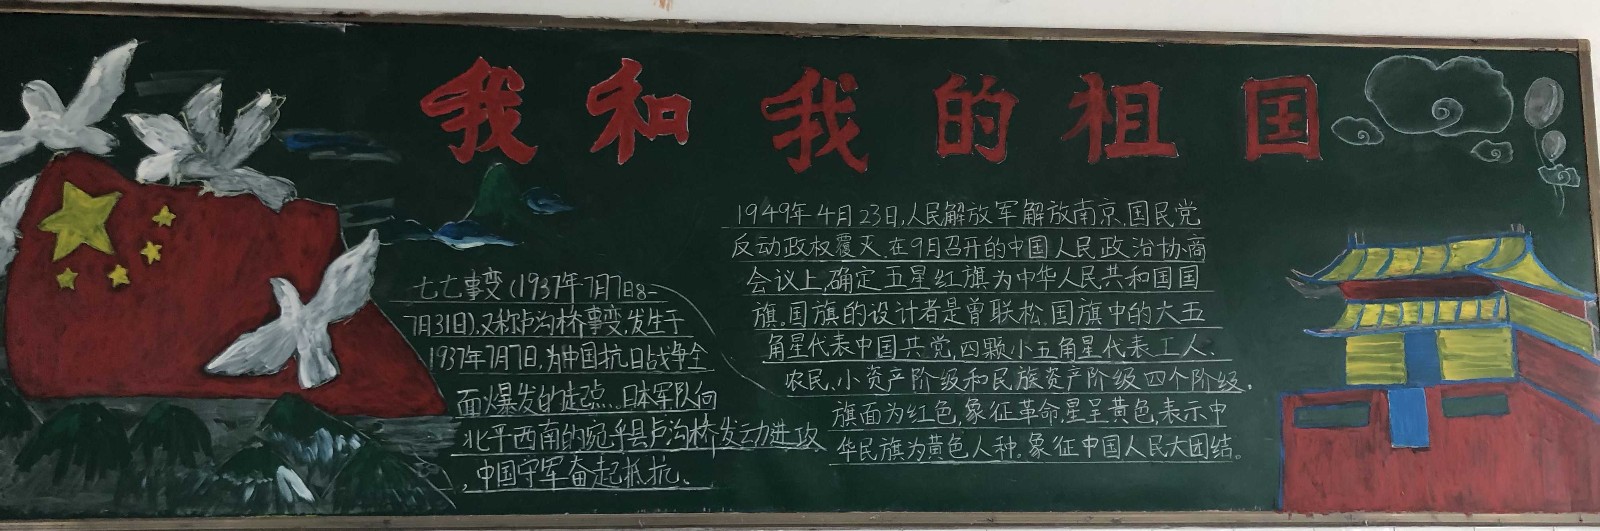 我和我的祖国
七七事变(1937年7月7日8-
7月31日),又称卢沟桥事变,发生于
1937年7月7日,为中国抗日战争全
面爆发的起点.日本军队向
北平西南的宛平县卢沟桥发动进攻
,中国守军奋起抵抗、
1949年4月23日,人民解放军解放南京.国民党
反动政权覆灭.在9月召开的中国人民政治协商
会议上,确定五星红旗为中华人民共和国国
旗.国旗的设计者是曾联松.国旗中的大五
角星代表中国共党,四颗小五角星代表工人、
农民、小资产阶级和民族资产阶级四个阶级.
旗面为红色,象征革命,星呈黄色,表示中
华民旗为黄色人种.象征中国人民大团结。